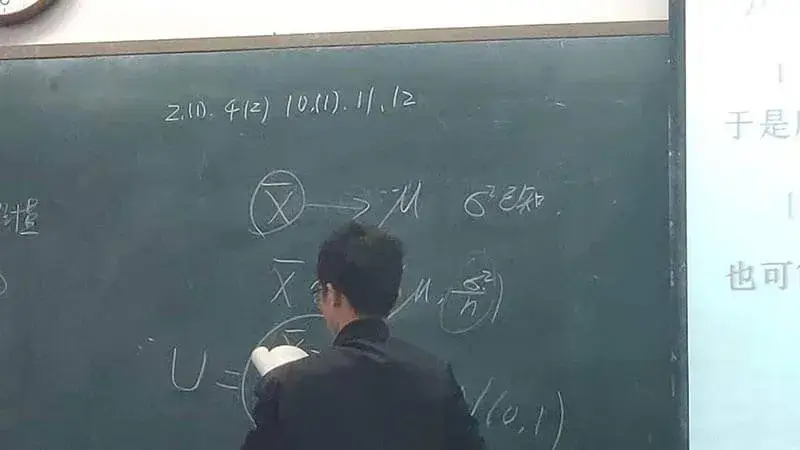 2.(1). 4(2) 10.(1). 11, 12
计值
X̄ → μ σ²已知
X̄ μ, σ²/n)
U = (0,1)
于是
也可